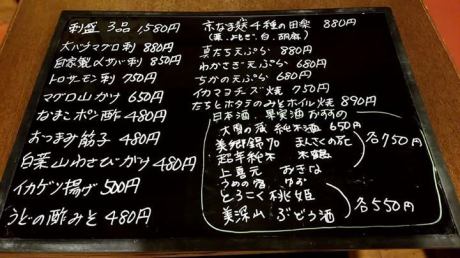 刺盛 3品 1,580円
大バチマグロ刺 880円
自家製〆サバ刺 850円
トロサーモン刺 750円
マグロ山かけ 650円
なまこポン酢 480円
おつまみ筋子 480円
白菜山わさびがけ 480円
イカゲソ揚げ 500円
うどの酢みそ 480円
京なま麩4種の田楽 880円
(粟、よもぎ、白、胡麻)
真だち天ぷら 880円
わかさぎ天ぷら 680円
ちかの天ぷら 680円
イカマヨチーズ焼 750円
たちとホタテのみそホイル焼 890円
日本酒、果実酒おすすめ
大関の蔵 純米酒 650円
美郷錦70 まんさくの花
超辛純米 木鶴
各750円
上喜元 おきな
うめの宿 ゆず
とろこく桃姫
美深山 ぶどう酒
各550円